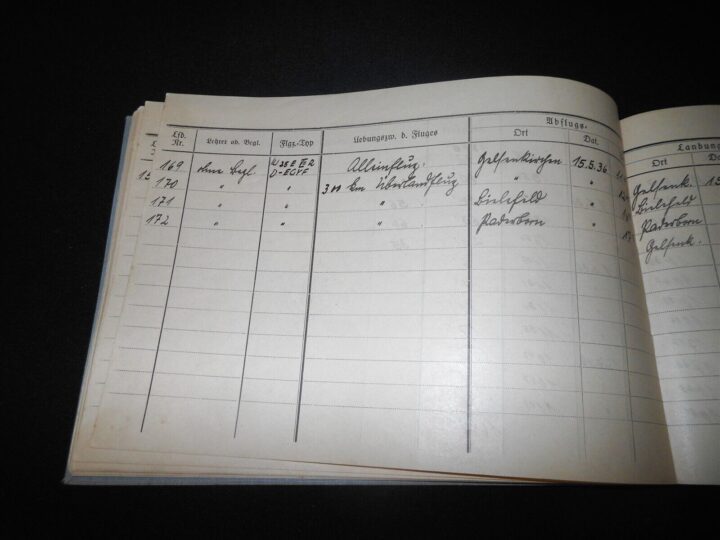 Abflugs-
Lfd. Nr. Lehrer od. Begl. Flgz.-Typ Uebungszw. d. Fluges Ort Dat. Landung
Ort Da
169 ohne Begl. D-EGYF Alleinflug. Gelsenkirchen 15.5.36 Gelsenk. 15
170 " " 300 km Überlandflug " " Bielefeld
171 " " " Bielefeld " Paderborn
172 " " " Paderborn " Gelsenk.